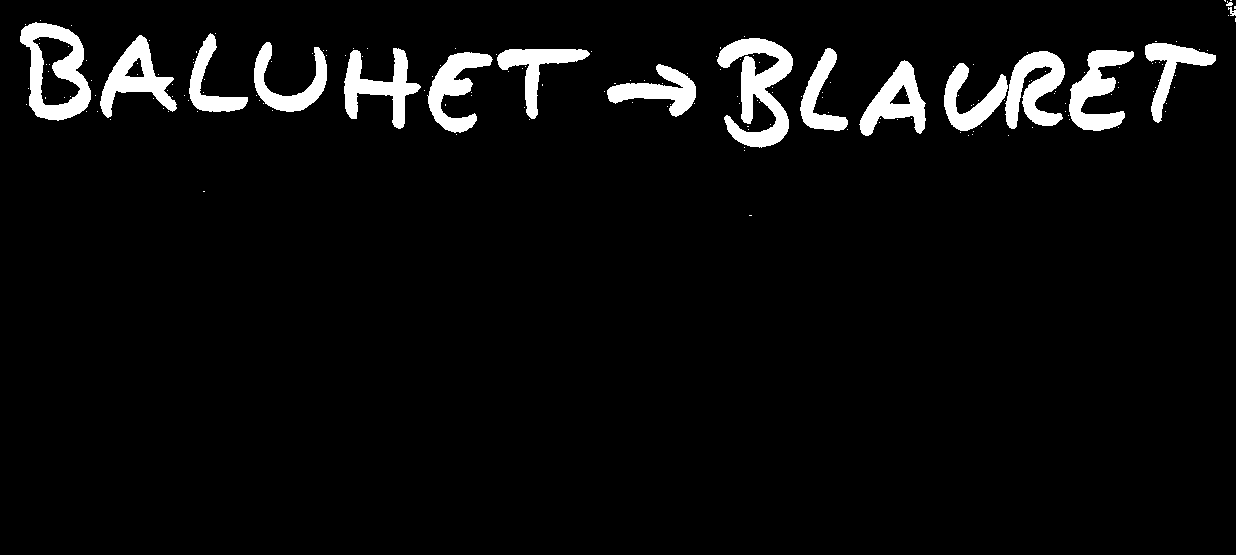 BALUHET → BLAURET